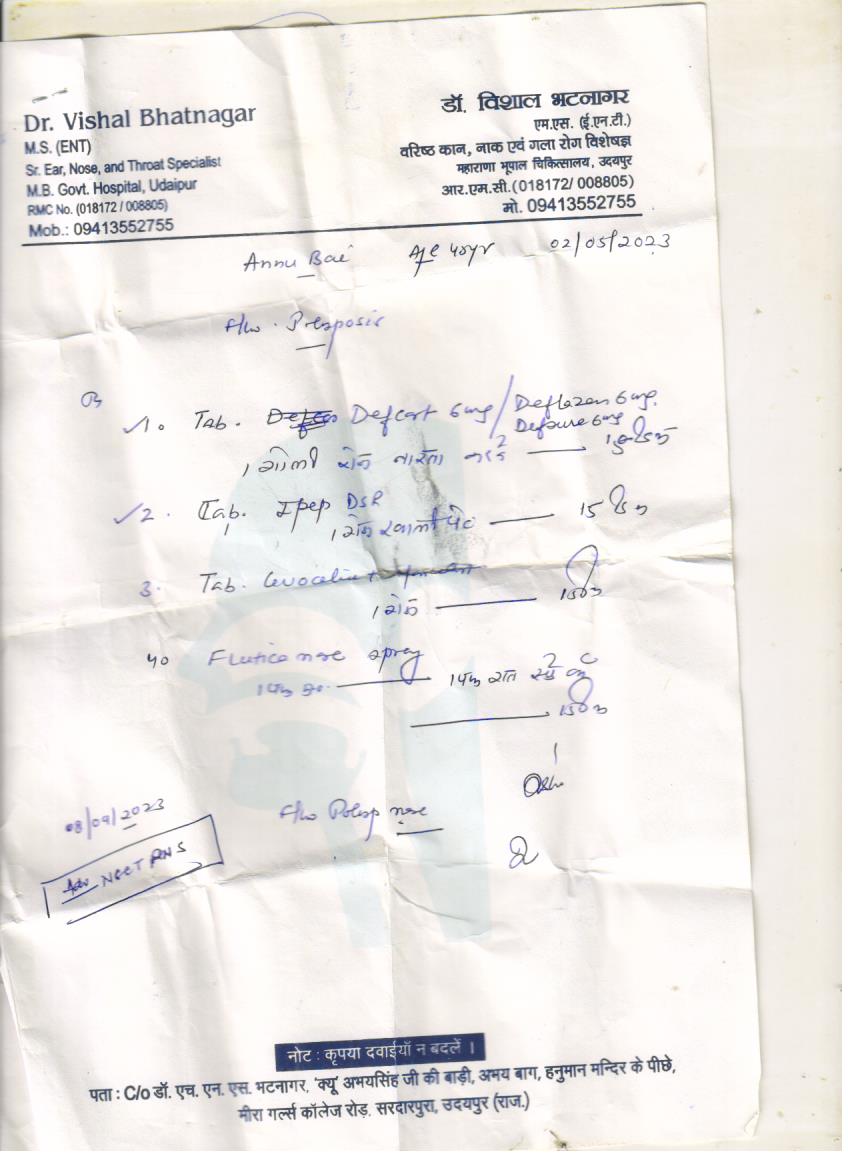 Dr. Vishal Bhatnagar
M.S. (ENT)
Sr. Ear, Nose, and Throat Specialist
M.B. Govt. Hospital, Udaipur
RMC No. (018172 / 008805)
Mob.: 09413552755
डॉ. विशाल भटनागर
एम.एस. (ई.एन.टी.)
वरिष्ठ कान, नाक एवं गला रोग विशेषज्ञ
महाराणा भूपाल चिकित्सालय, उदयपुर
आर.एम.सी.(018172/ 008805)
मो. 09413552755
Annu Bai Age 40yr 02/05/2023
1. Tab. Defcort 6mg/ Deflazen 6mg.
Defsure 6mg
1 गोली रोज नाश्ता
2. Tab. Ipep DSR
1 रोज खाली पेट 15 दिन
3. Tab.
1 रोज
4. Flutica nose spray
08/09/2023
Adv NCCT PNS
नोट : कृपया दवाईयाँ न बदलें ।
पता : C/o डॉ. एच. एन. एस. भटनागर, 'क्यू' अभयसिंह जी की बाड़ी, अभय बाग, हनुमान मन्दिर के पीछे,
मीरा गर्ल्स कॉलेज रोड़. सरदारपुरा, उदयपुर (राज.)